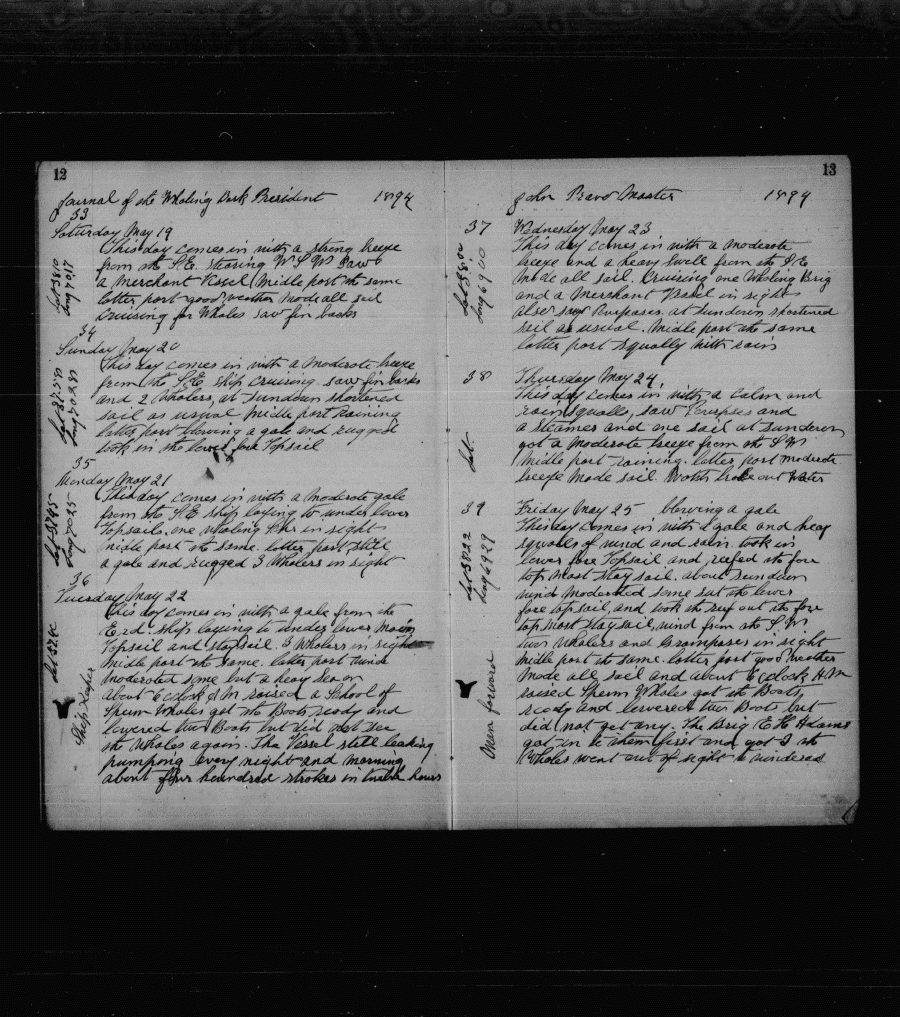 12
Journal of the Whaling Bark President 1894
33
Saturday May 19
This day comes in with a strong breeze
from the S.E. stearing W S W Saw
a Merchant Midle part the same
latter part good weather made all sail
cruising for Whales saw fin backs
Lat 3810
Long 7017
34
Sunday May 20
This day comes in with a Moderate breeze
from the S.E. ship cruising. saw fin backs
and 2 Whalers, at Sundown shortened
sail as usual Midle part raining
latter part blowing a gale and rugged
took in the lower fore Topsail
Long 7028
35
Monday May 21
This day comes in with a Moderate gale
from the S.E ship laying to under lower
Topsails. one whaling in sight
midle part the same. latter part still
a gale and rugged 3 Whalers in sight
Lat 3745
Long 7025
36
Tuesday May 22
This day comes in with a gale from the
E.rd. ship laying to under lower Main
Topsail and staysail. 3 Whalers in sight
Midle part the same. latter part wind
moderated some but a heavy sea on
about 6 clock A M raised a School of
Sperm Whales got the Boats ready and
lowered two Boats but did not see
the Whales again. The Vessel still leaking
pumping every night and morning
about four hundred strokes in twelve hours
Ship Keeper
13
John Pravo Master 1894
37 Wednesday May 23
This day comes in with a Moderate
breeze and a heavy swell from the S E
made all sail. Cruising one Whaling Brig
and a Merchant Vessel in sight
also saw Purpases. at Sundown shortened
sail as usual. Midle part the same
latter part squally with rain
Lat 3800
Long 6900
38 Thursday May 24.
This day comes in with a calm and
rain squalls, saw Purpses and
a Steamer and one sail at sundown
got a Moderate breeze from the S W
Midle part raining. latter part moderate
breeze Made sail. broke out water
Lat.
39 Friday May 25 blowing a gale
This day comes in with a gale and heavy
squalls of wind and rain. took in
lower fore Topsail and reefed the fore
top most stay sail. about sundown
wind Moderated some sat the lower
fore topsail, and took the reef out the fore
top most staysail, wind from the S W
two Whalers and Grampases in sight
Midle part the same. latter part good weather
Made all sail and about 6 clock A.M
raised Sperm Whales got the Boats
ready and lowered two Boats but
did not get any. The Brig E H Adams
got in to them first and got 1 the
Whales went out of sight to windward
Lat 3822
Long 6929
Man forward